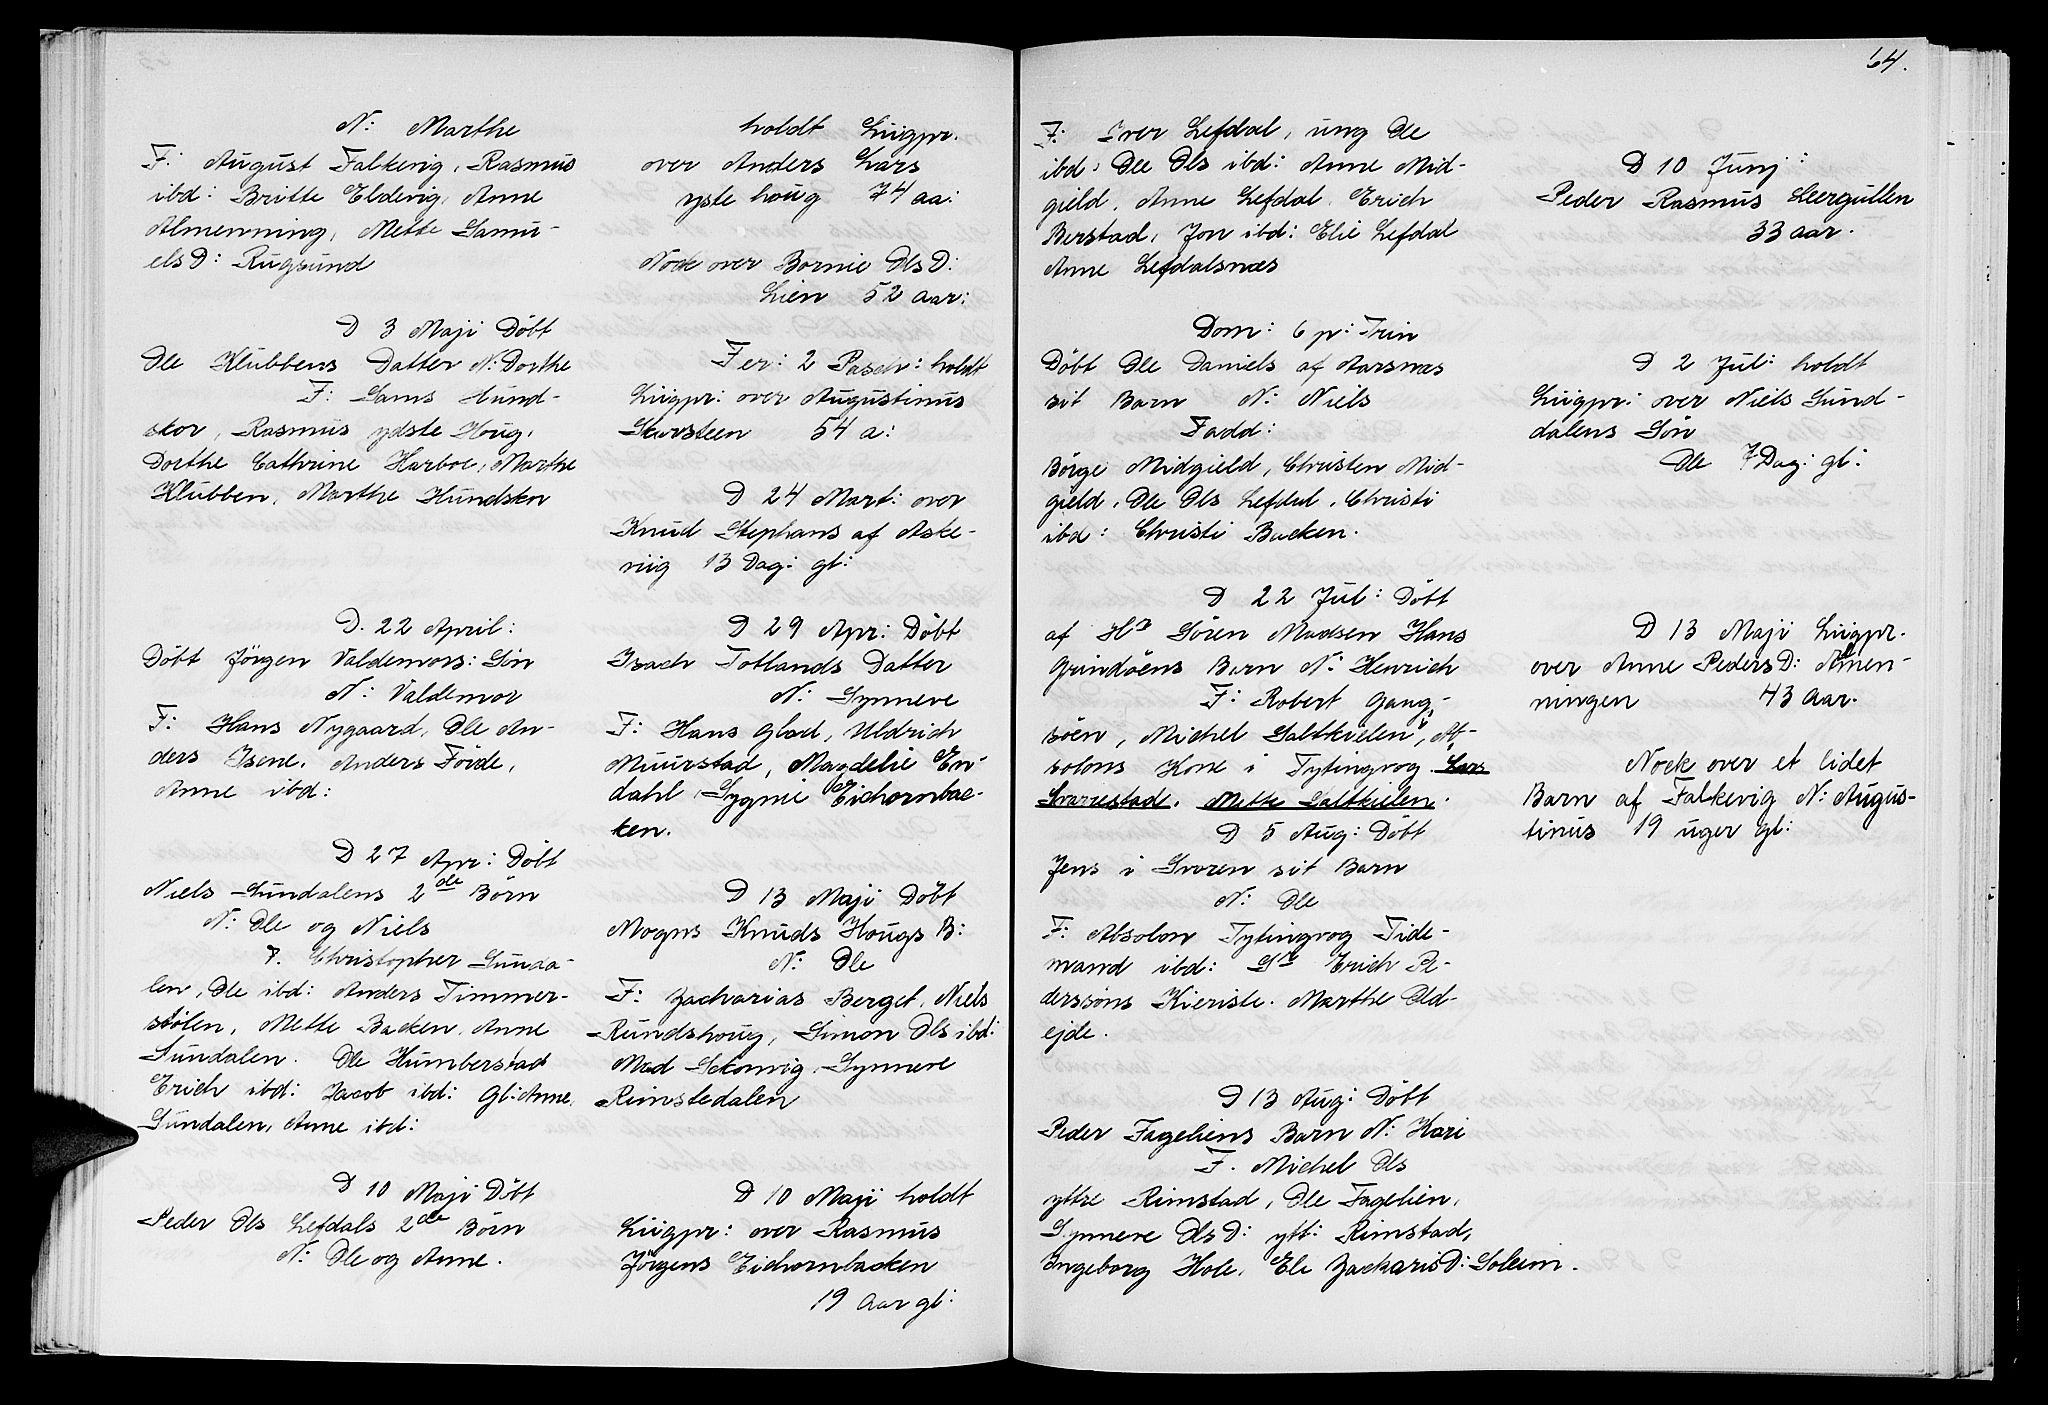 N: Marthe
F: August Falkevig, Rasmus
ibd: Britte Eldevig, Anne
Almenning, Mette Samu-
elsD: Rugsund
D 3 Maji Döbt
Ole Klubbens Datter N: Dorthe
F: Lams Hund-
skor, Rasmus ydste Houg,
Dorthe Cathrine Harboe, Marthe
Klubben, Marthe Hundskor
D. 22 April:
Döbt Jörgen Valdemors: Sön
N: Valdemor
F: Hans Nygaard, Ole An-
ders Isene, Anders Förde,
Anne ibd:
D 27 Apr: Döbt
Niels Sundalens 2de Börn
N: Ole og Niels
F. Christopher Sunda-
len, Ole ibd: Anders Timmer-
stölen, Mette Backen, Anne
Sundalen. Ole Humberstad
Erich ibd: Jacob ibd: Gl: Anne
Sundalen, Anne ibd:
D 10 Maji Döbt
Peder Ols Lefdals 2de Börn
N: Ole og Anne.
holdt Liigpr.
over Anders Lars
yste houg 74 aa:
Nock over Bornie OlsD:
Lien 52 aar:
Fer: 2 Pasch: holdt
Liigpr: over Augustinus
Skorsteen 54 a:
D 24 Mart: over
Knud Stephans af Aske-
viig 13 Dag: gl:
D 29 Apr: Döbt
Isach Totlands Datter
N: Synneve
F: Hans Glad, Uldrich
Muurstad, Magdelie En-
dahl, Sygnie Eichornbac-
ken.
D 13 Maji Döbt
Mogns Knuds Hougs B:
N: Ole
F: Zacharias Berget, Niels
Rundshoug, Simon Ols ibd:
Mad Sekomvig, Synneve
Rimstedalen
D 10 Maji holdt
Liigpr: over Rasmus
Jörgens Eichornbacken
19 Aar gl:
64.
F: Iver Lefdal, ung Ole
ibd: Ole Ols ibd: Anne Mid-
gield, Anne Lefdal, Erich
Berstad, Jon ibd: Elie Lefdal
Anne Lefdalsnæs
Dom: 6 p: Trin
Döbt Ole Daniels af Aarsnæs
sit Barn N: Niels
Fadd:
Börge Midgield, Christen Mid-
gield, Ole Ols Lefdal, Christi
ibd: Christi Backen.
D 22 Jul: Döbt
af Hr Sören Madsen Hans
Grindöens Barn N: Henrich
F: Robert Gang-
söen, Michel Saltkielen, Ab-
solons Kone i Tytingvog Lars
Svarrestad, Mette Saltkielen.
D 5 Aug: Döbt
Jens i Svoren sit Barn
N: Ole
F: Absolon Tytingvog Tide-
mand ibd: Sr Erich Pe-
dersöns Kieriste. Marthe Old-
ejde.
D 13 Aug: Döbt
Peder Fageliens Barn N: Kari
F. Michel Ols
yttre Rimstad, Ole Fagelien,
Synneve OlsD: ytt: Rimstad,
Ingeborg Hole, Ele ZackarisD: Soleim.
D 10 Junj:
Peder Rasmus Leergullen
33 aar.
D 2 Jul: holdt
Liigpr: over Niels Sund-
dalens Sön
Ole 7 Dag: gl:
D 13 Maji Liigpr.
over Anne PedersD: Amen-
ningen 43 Aar.
Nock over et lidet
Barn af Falkevig N: Augus-
tinus 19 uger gl: